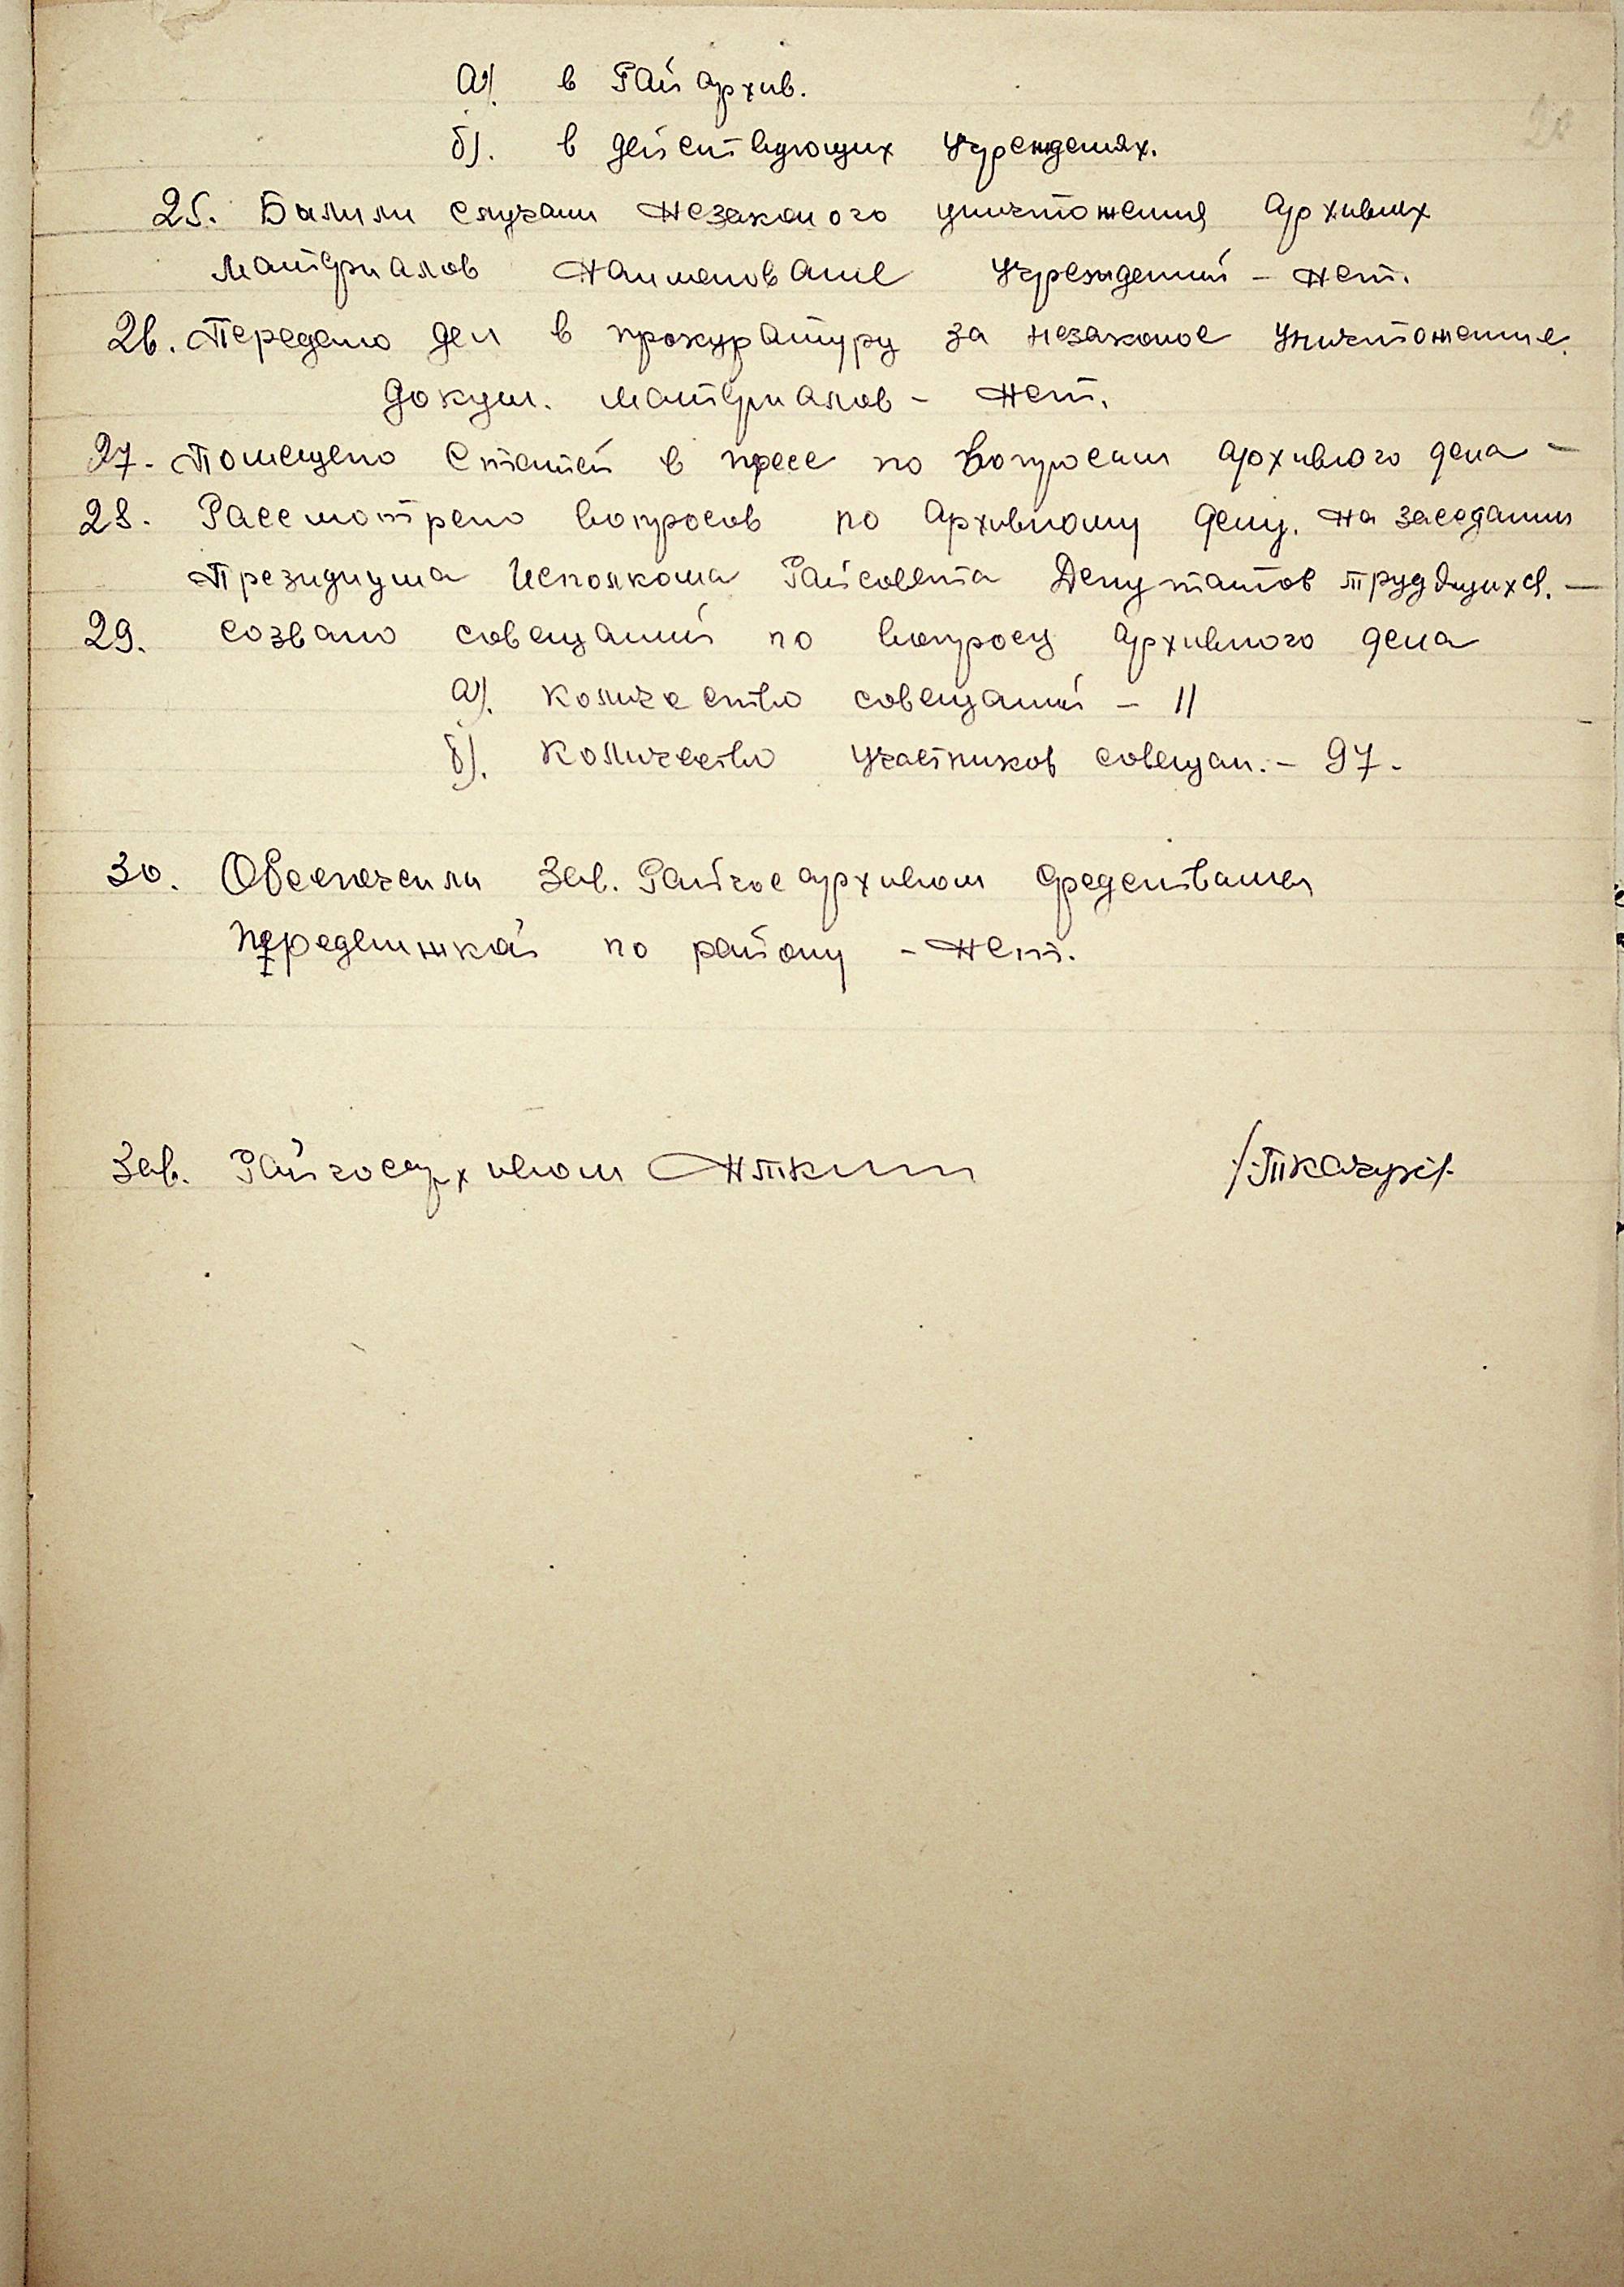 а). в Райархив.
б). в действующих учреждениях.
25. Былили случаи незаконого уничтожения архивных
материалов наименование учреждений - нет.
26. Передано дел в прокуратуру за незаконое уничтожение
докум. материалов - нет.
27. Помещено статей в прессе по вопросам архивного дела -
28. Рассмотрено вопросов по архивному делу. на заседании
Президиума Исполкома Райсовета Депутатов трудящихся. -
29. созвано совещаний по вопросу архивного дела
а). количество совещаний - 11
б). количество участников совещан. - 97.
30. Обеспечели Зав. Райгосархивом средствами
передвижкой по району - нет.
Зав. Райгосархивом /Ткачук/.